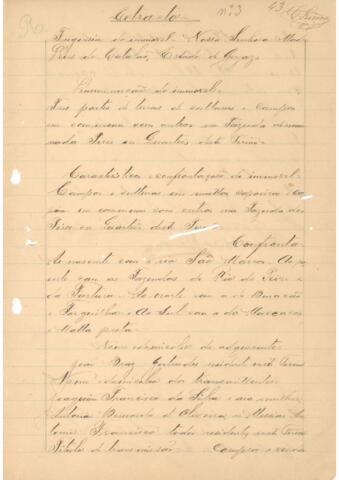 Extracto nº 3 43
Freguesia do immovel - Nossa Senhora Mad
Deus do Catalão, Estado de Goyaz
Denominação do immovel -
Tres partes de terras de culturas e campos
em commum com outros na Fazenda denomi
nada Pires ou Quarteis deste Termo
Caracteristico e confrontação do immovel -
Campos e culturas em
em commum com outros na Fazenda dos
Pires ou Quarteis deste Termo
Confronta
Ao nascente com o rio São Marcos. Ao po
ente com as Fazendas do Rio do Peixe e
da Pastura. Ao norte com a do
e . Ao Sul com a do
Matta preta.
Nome e domicilio do adquirente
João Braz Gertrudes residente neste Termo
Nome e domicilio dos transmittentes
Joaquim Francisco da Silva e sua mulher
Antonia Bernarda de Oliveira e Messias An
tonio Francisco todos residentes neste Termo
Titulo de transmissão - Compra e venda